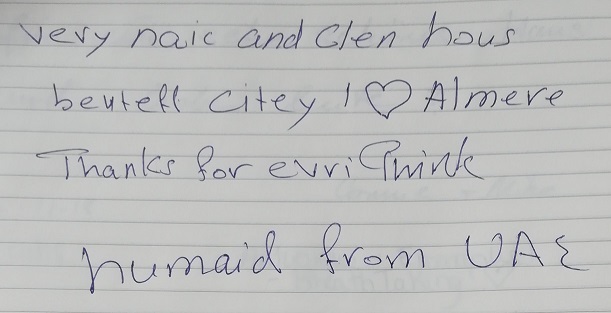 very naic and Clen hous
beutell citey I ♡ Almere
Thanks for evri Think
humaid from UAE